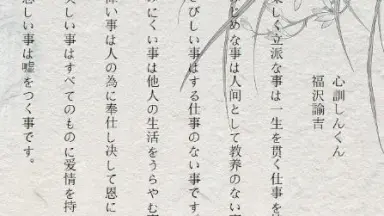 心訓しんくん
福沢諭吉
楽しく立派な事は一生を貫く仕事を
じめな事は人间として教养のない
さびしい事はする仕事のない事です
みにくい事は他人の生活をうらやむ
い事は人の為に奉仕し決して恩に
美しい事はすべてのものに爱情を持
悲しい事は嘘をつく事です。